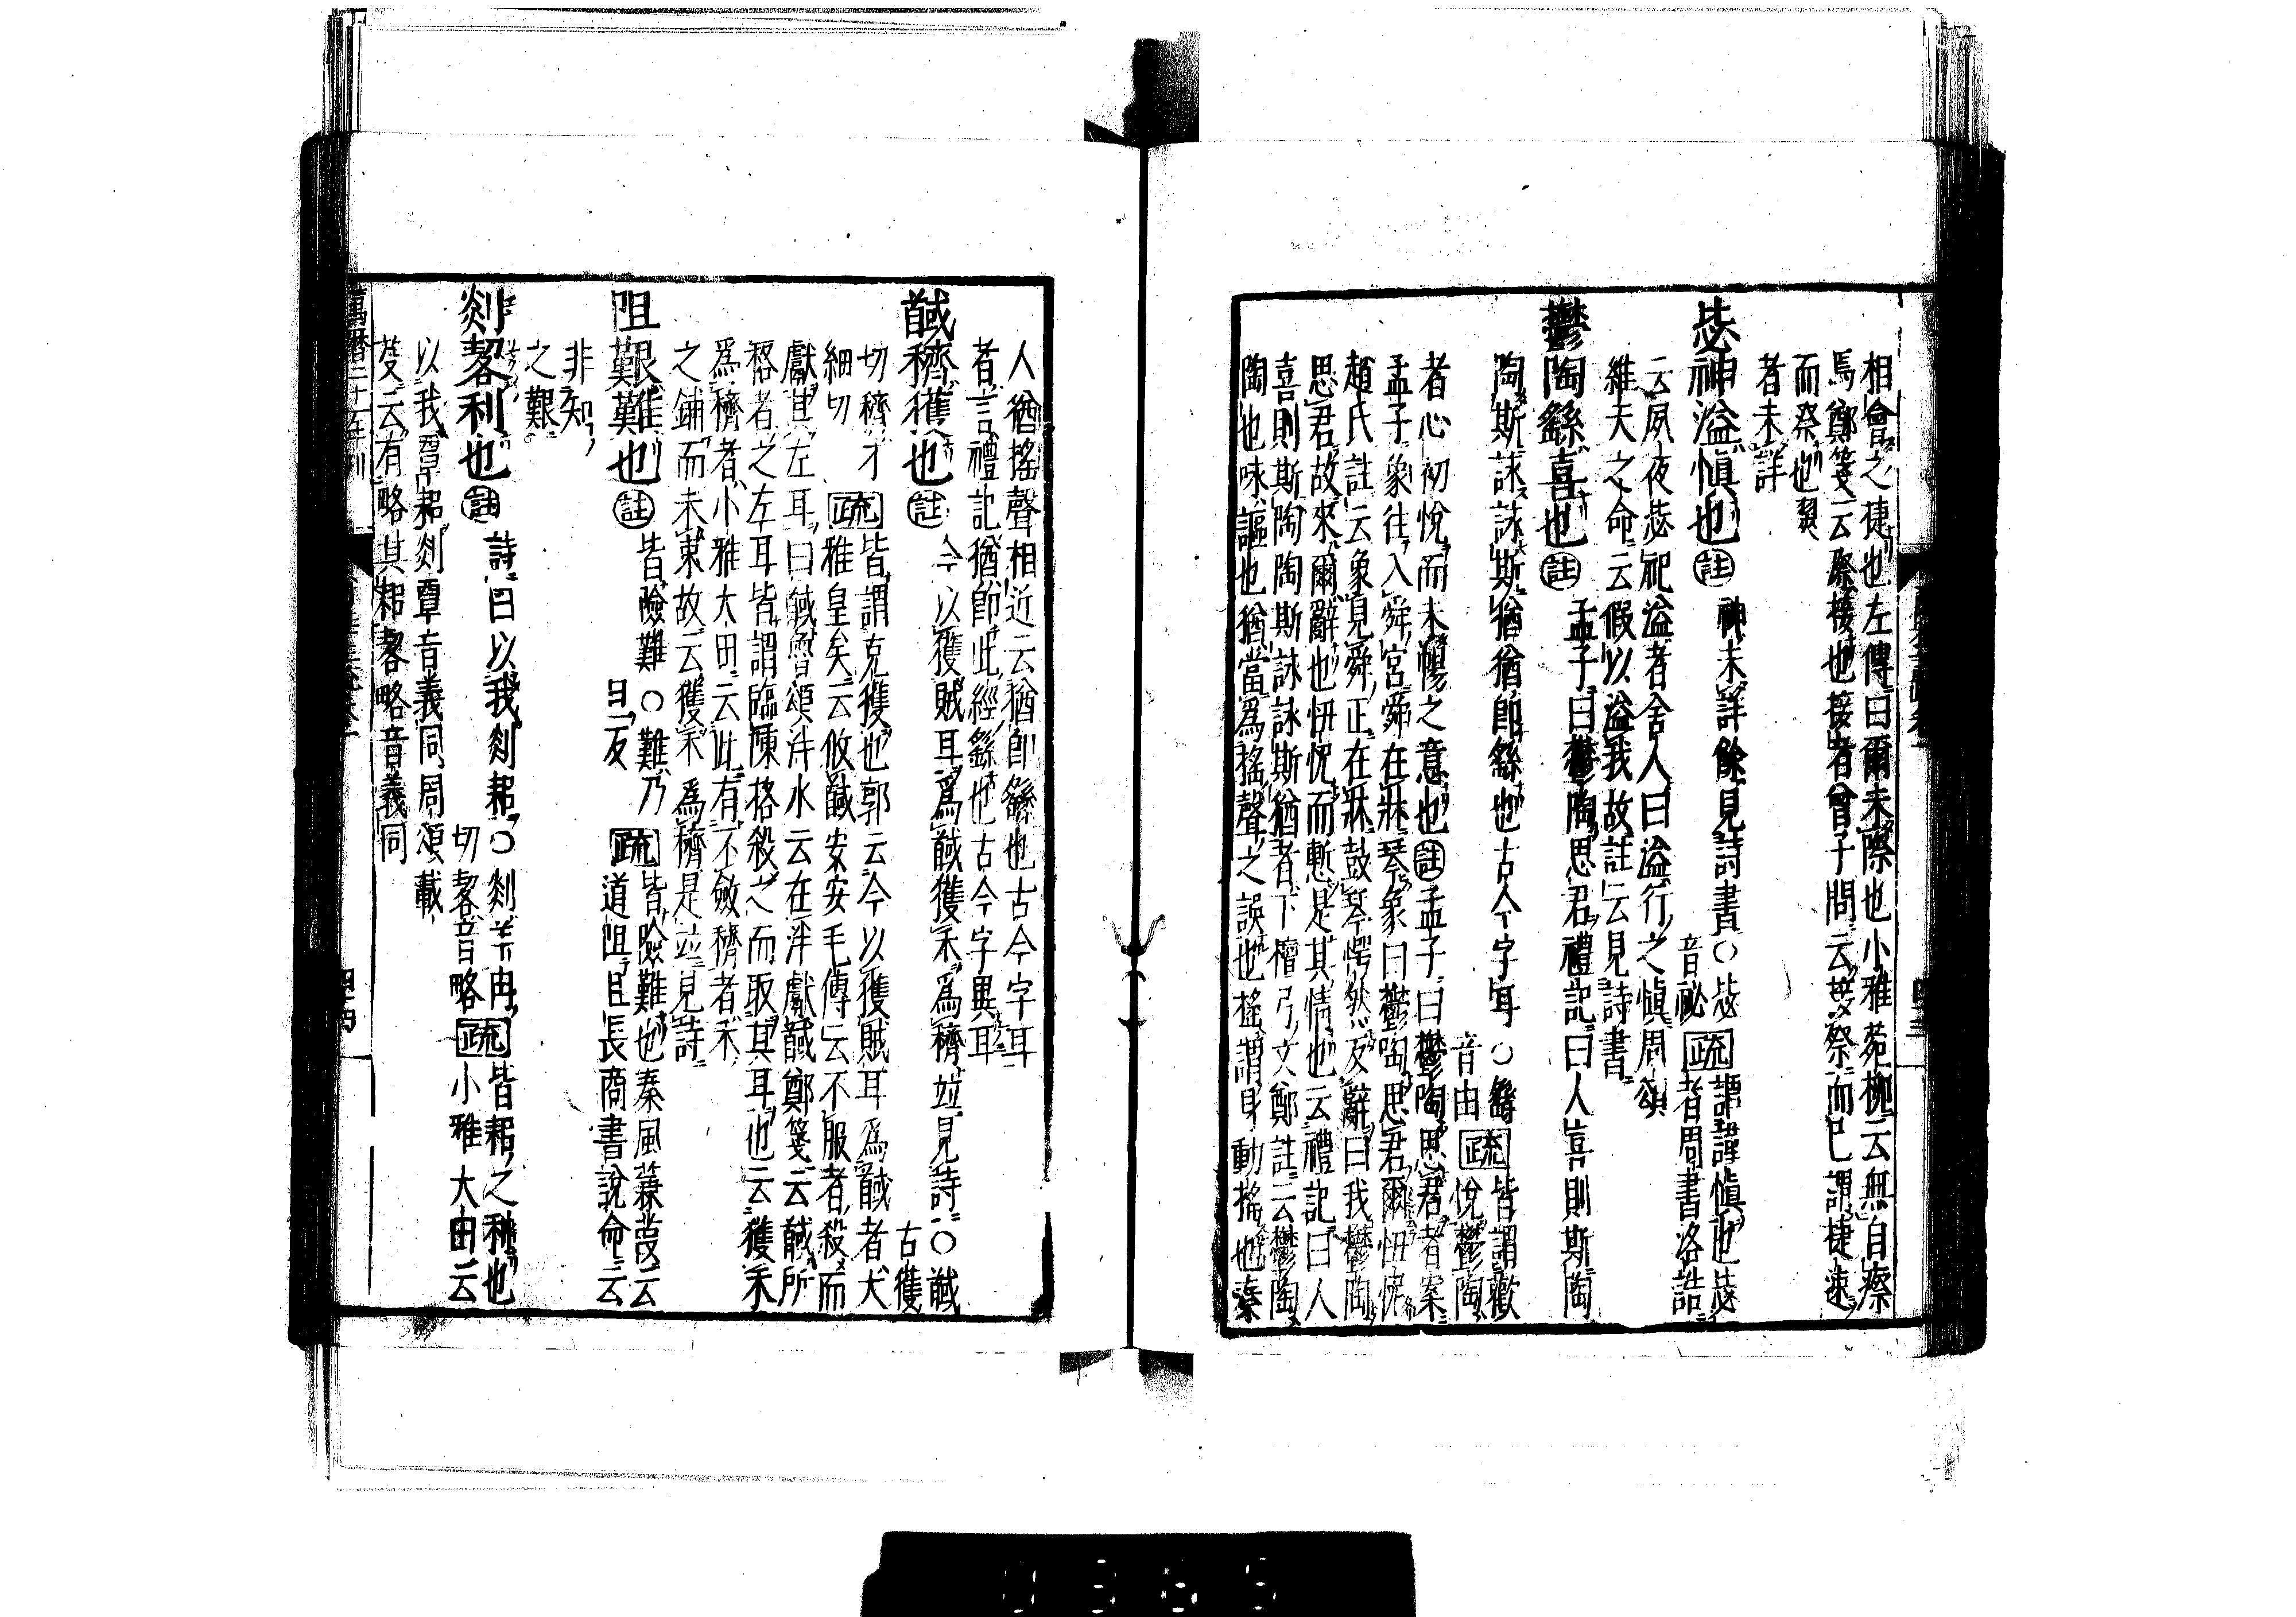 相會之捷也左傳曰爾未際也小雅菀柳云無自瘵
焉鄭箋云瘵接也接者曾子問云祭而已謂捷速
而祭也翼
者未詳
毖神溢愼也 註 神未詳餘見詩書○毖
音祕 疏 謂謹愼也毖
者周書洛誥
云夙夜毖祀溢者舍人曰溢行之愼周頌
維天之命云假以溢我故註云見詩書
鬱陶繇喜也 註 孟子曰鬱陶思君禮記曰人喜則斯陶
陶斯詠詠斯猶猶即繇也古今字耳○繇
音由 疏 皆謂歡
悅鬱陶
者心初悅而未暢之意也註孟子曰鬱陶思君者案
孟子象往入舜宮舜在牀琴象曰鬱陶思君爾忸怩
趙氏註云象見舜正在牀鼓琴愕然反辭曰我鬱陶
思君故來爾辭也忸怩而慙是其情也云禮記曰人
喜則斯陶陶斯詠詠斯猶者下檀弓文鄭註云鬱陶
陶也咏謳也猶當爲搖聲之誤也搖謂身動搖也秦
人猶搖聲相近云猶卽繇也古今字耳
者言禮記猶卽此經繇也古今字異耳
馘穧獲也 註 今以獲賊耳爲馘獲禾爲穧竝見詩○馘
古獲
切穧才
細切 疏 皆謂克獲也郭云今以獲賊耳爲馘者犬
雅皇矣云攸馘安安毛傳云不服者殺而
獻其左耳曰馘魯頌泮水云在泮獻馘鄭箋云馘所
格者之左耳皆謂臨陳格殺之而取其耳也云獲禾
爲穧者小雅大田云此有不斂穧者禾
之鋪而未束故云獲禾爲穧是竝見詩
阻艱難也 註 皆險難○難乃
旦反 疏 皆險難也秦風蒹葭云
道阻且長商書說命云
非知
之艱
剡䂮利也 註 詩曰以我剡耜○剡羊冉
切䂮音略 疏 皆耜之利也
小雅大田云
以我覃耜剡覃音義同周頌載
芟云有略其耜䂮略音義同
萬曆二十一年刊